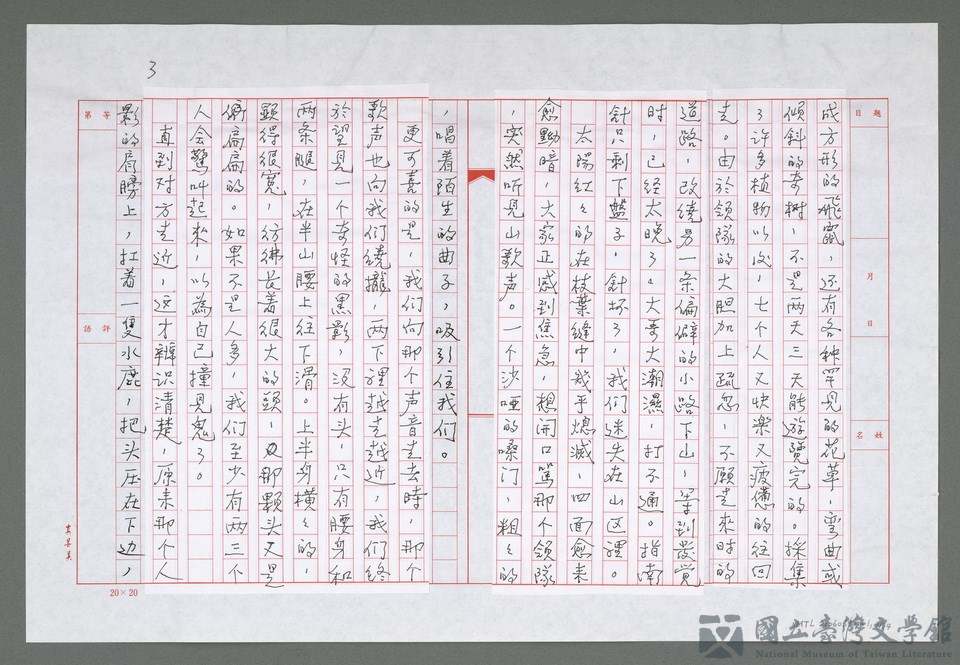 3
題目
月 日
姓名
成方形的飛鼠,还有各种罕見的花草,弯曲或
傾斜的奇樹,不是两天三天能游覽完的。採集
了許多植物以後,七个人又快楽又疲憊的往回
走。由於領隊的大胆加上疏忽,不願走來时的
道路,改繞另一条偏僻的小路下山,等到發覚
时,已经太晚了。大哥大潮濕,打不通。指南
針只剩下盤子,針坏了,我们迷失在山区裡。
太陽红々的在枝葉縫中幾乎熄滅,四面愈来
愈黝暗,大家正感到焦急,想開口罵那个領隊
,突然听見山歌声。一个沙哑的嗓门,粗々的
,唱着陌生的曲子,吸引住我们。
更可喜的是,我们向那个声音走去時,那个
歌声也向我们繞攏,两下裡越走越近,我们终
於望見一个奇怪的黑影,没有头,只有腰身和
两条腿,在半山腰上往下滑。上半身横々的,
顕得很寬,彷彿长着很大的頭,又那顆头又是
偏扁的。如果不是人多,我们至少有两三个
人会驚叫起來,以為自己撞見鬼了。
直到对方走近,这才辨识清楚,原来那个人
影的肩膀上,扛着一隻水鹿,把头压在下边,
等第
評語
20×20
國立臺灣文學館
National Museum of Taiwan Literature